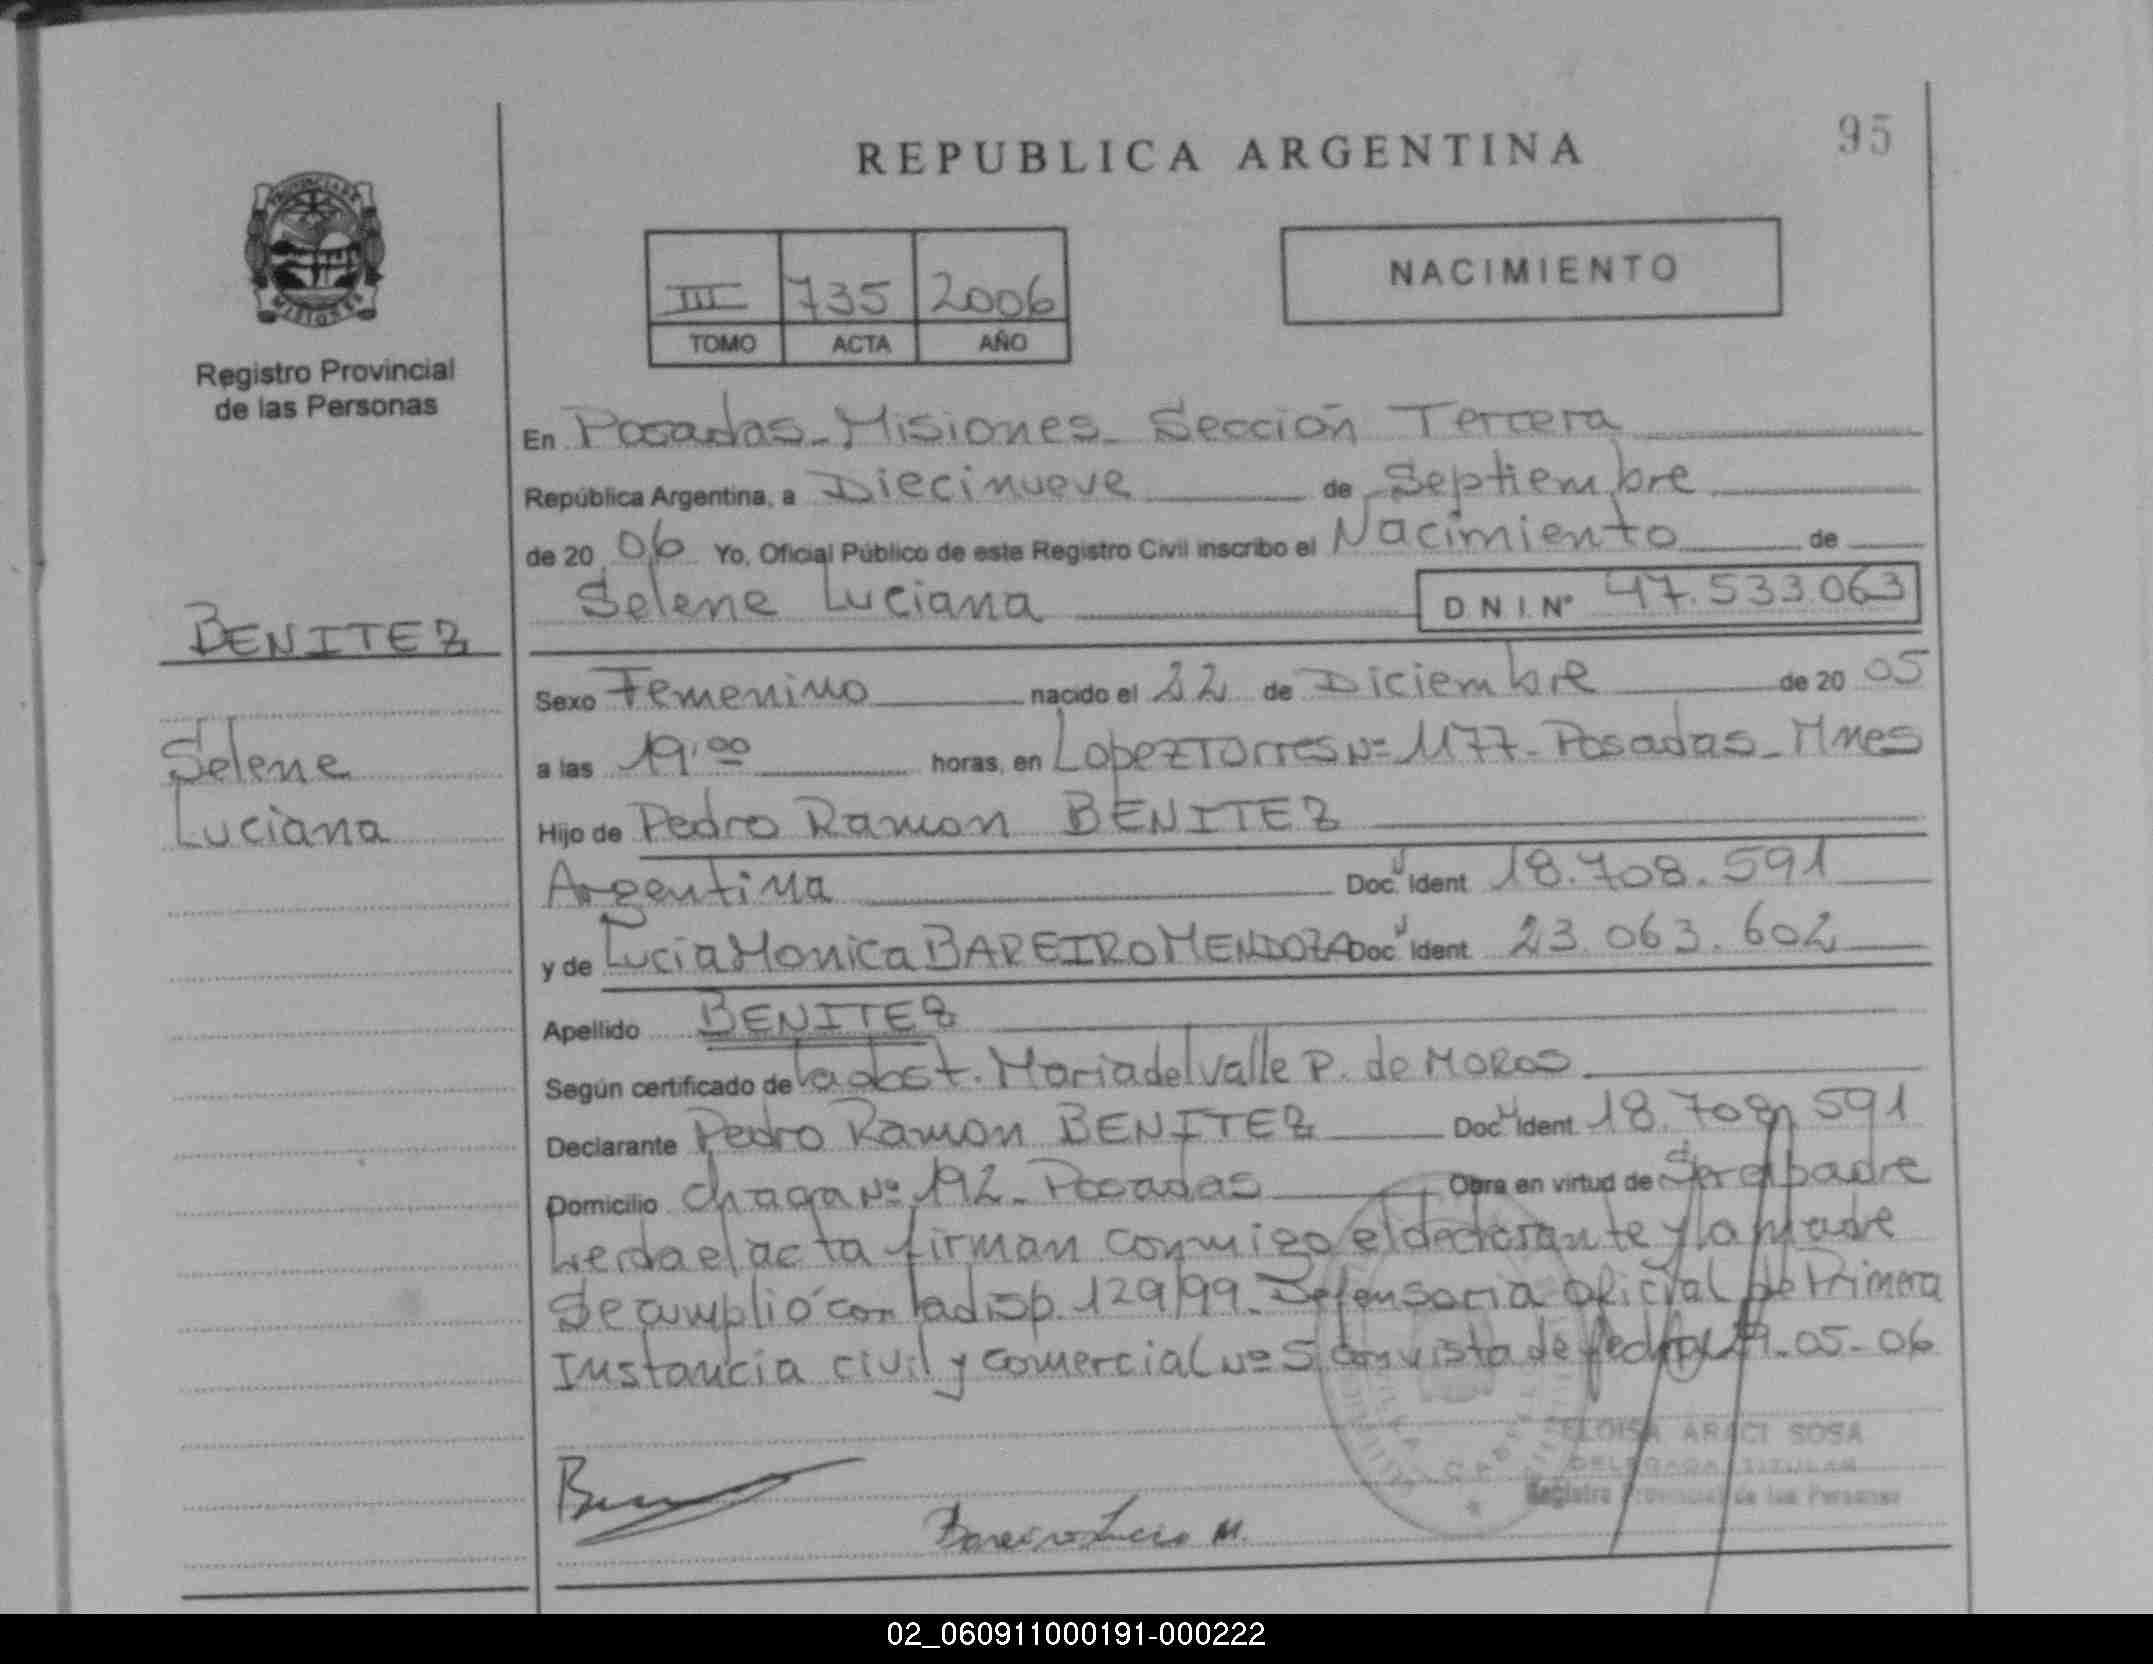 REPUBLICA ARGENTINA
95
PROVINCIA DE
MISIONES
Registro Provincial
de las Personas
III 735 2006
TOMO ACTA AÑO
NACIMIENTO
En Posadas - Misiones - Sección Tercera
República Argentina, a Diecinueve de Septiembre
de 20 06 Yo, Oficial Público de este Registro Civil inscribo el Nacimiento de
Selene Luciana D N I. N° 47.533.063
BENITEZ
Selene
Luciana
Sexo Femenino nacido el 22 de Diciembre de 20 05
a las 19:00 horas, en Lopez Torres Nº 1177 - Posadas - Mnes
Hijo de Pedro Ramon BENITEZ
Argentina Doc. Ident 18.708.591
y de Lucia Monica BAREIRO MENDOZA Doc. Ident. 23.063.602
Apellido BENITEZ
Según certificado de la obst. Maria del Valle P. de MOROS
Declarante Pedro Ramon BENITEZ Doc. Ident. 18.708.591
Domicilio Chacra Nº 192 - Posadas Obra en virtud de Ser el padre
Leida el acta firman conmigo el declarante y la madre
Se cumplió con la disp. 129/99 - Defensoria oficial de Primera
Instancia civil y comercial Nº 5 con vista de fecha 29-05-06
ELOISA ARACI SOSA
DELEGADA TITULAR
Registro Provincial de las Personas
Bareiro Lucia M.
02_060911000191-000222